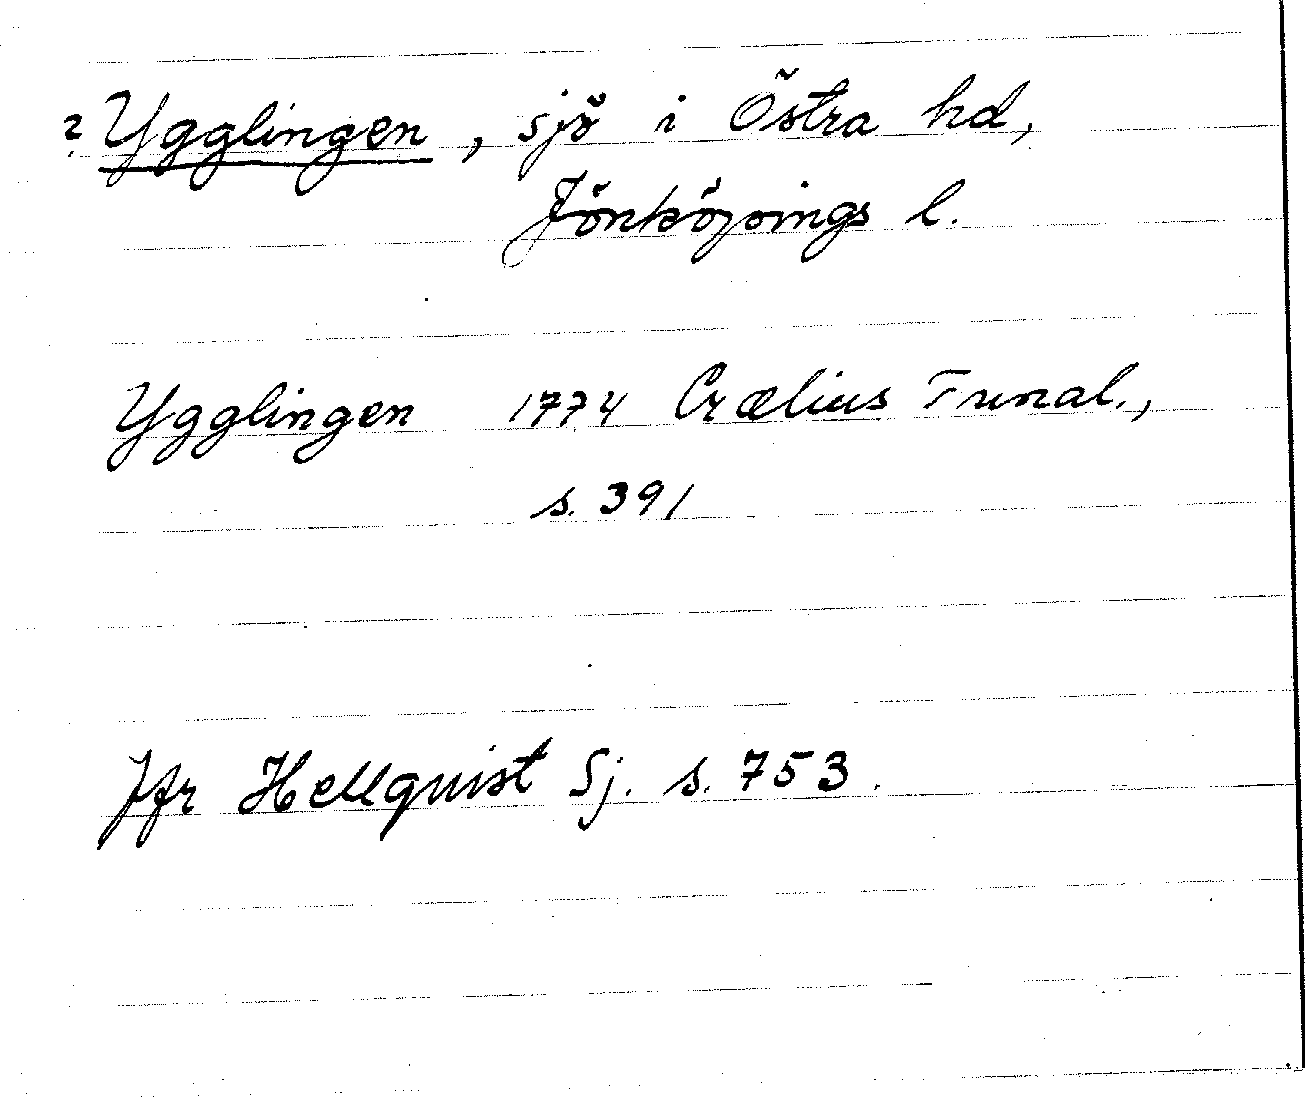 ? Ygglingen, sjö i Östra hd,
Jönköpings l.
Ygglingen 1774 Crælius Tunal.,
s. 391
Jfr Hellquist Sj. s. 753.